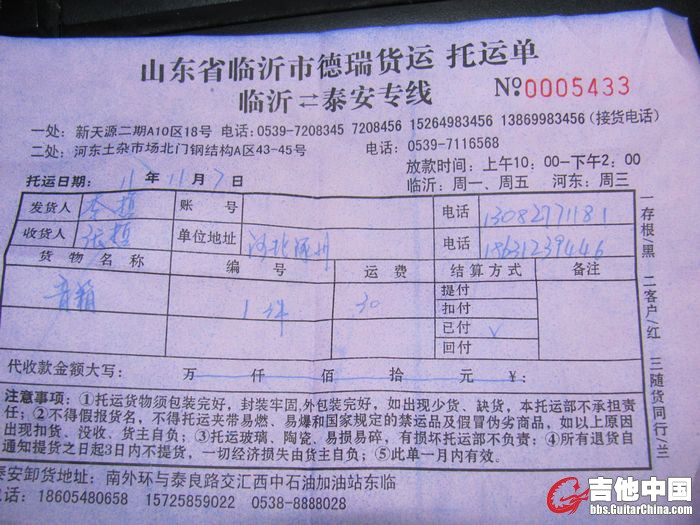 山东省临沂市德瑞货运 托运单
临沂⇌泰安专线 №0005433
一处：新天源二期A10区18号 电话：0539-7208345 7208456 15264983456 13869983456(接货电话)
二处：河东土杂市场北门钢结构A区43-45号 电话：0539-7116568
放款时间：上午10：00-下午2：00
托运日期：11年11月7日 临沂：周一、周五 河东：周三
发货人 李哲 账号 电话 13082771181
收货人 张哲 单位地址 河北涿州 电话 18631239446
货物名称 编号 运费 结算方式 备注
音箱 1件 30 提付
扣付
已付 √
回付
代收款金额大写： 万 仟 佰 拾 元 ¥：
注意事项：①托运货物须包装完好，封装牢固,外包装完好，如出现少货、缺货，本托运部不承担责
任；②不得假报货名，不得托运夹带易燃、易爆和国家规定的禁运品及假冒伪劣商品，如以上原因
出现扣货、没收、货主自负；③托运玻璃、陶瓷、易损易碎，有损坏托运部不负责：④所有退货自
通知提货之日起3日内不提货，一切经济损失由货主自负；⑤此单一月内有效。
泰安卸货地址：南外环与泰良路交汇西中石油加油站东临
电话：18605480658 15725859022 0538-8888028
一存根/黑 二客户/红 三随货同行/兰
吉他中国
bbs.GuitarChina.com